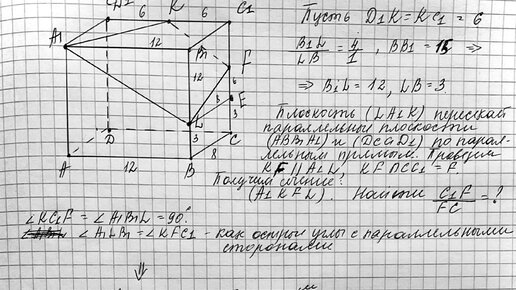 D1 6 K 6 C1
A1
12
B1
12
F
6
E
3
3
L
3
D
C
8
A 12 B
Пусть D1K = KC1 = 6
B1L/LB = 4/1, BB1 = 15 ⇒
⇒ B1L = 12, LB = 3
Плоскость (LA1K) пересекай
параллельные плоскости
(ABB1A1) и (DCC1D1) по парал-
лельным прямым. Проведем
KF || A1L, KF ∩ CC1 = F
Получим сечение
(A1KFL). Найти C1F/FC = ?
∠KC1F = ∠A1B1L = 90°.
∠A1LB1 = ∠KFC1 - как острые углы с параллельными
сторонами
⇓